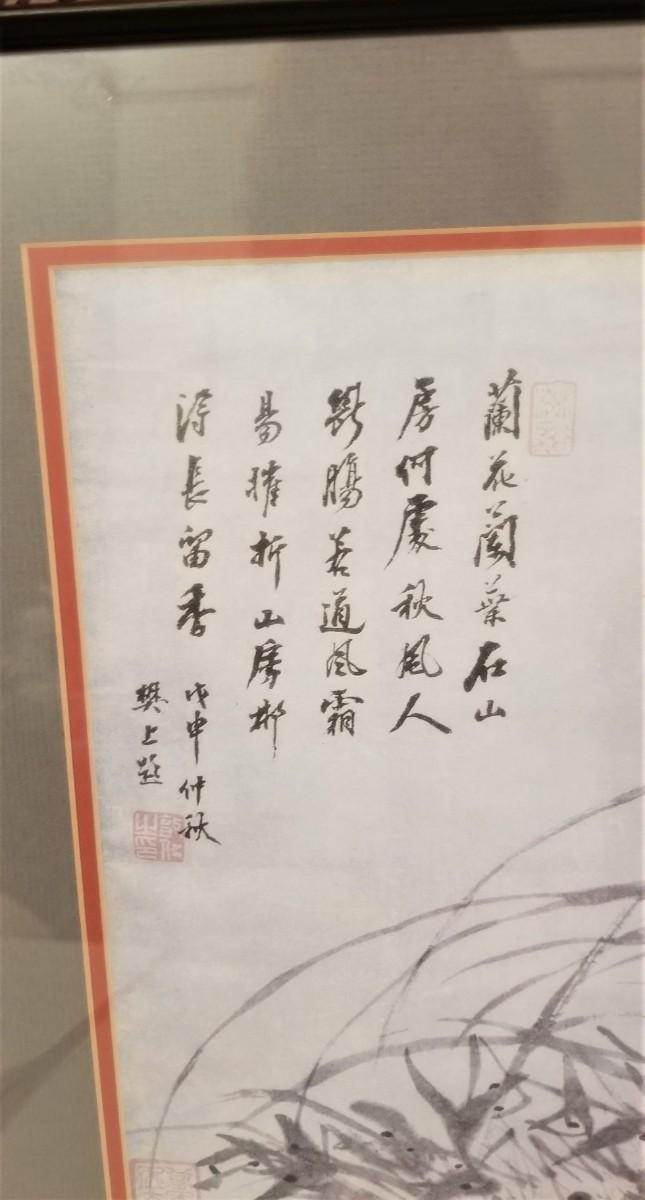 蘭花蘭葉在山
房何處秋風人
斷腸若道風霜
易摧折山房那
得長留香
戊申仲秋
樊上題